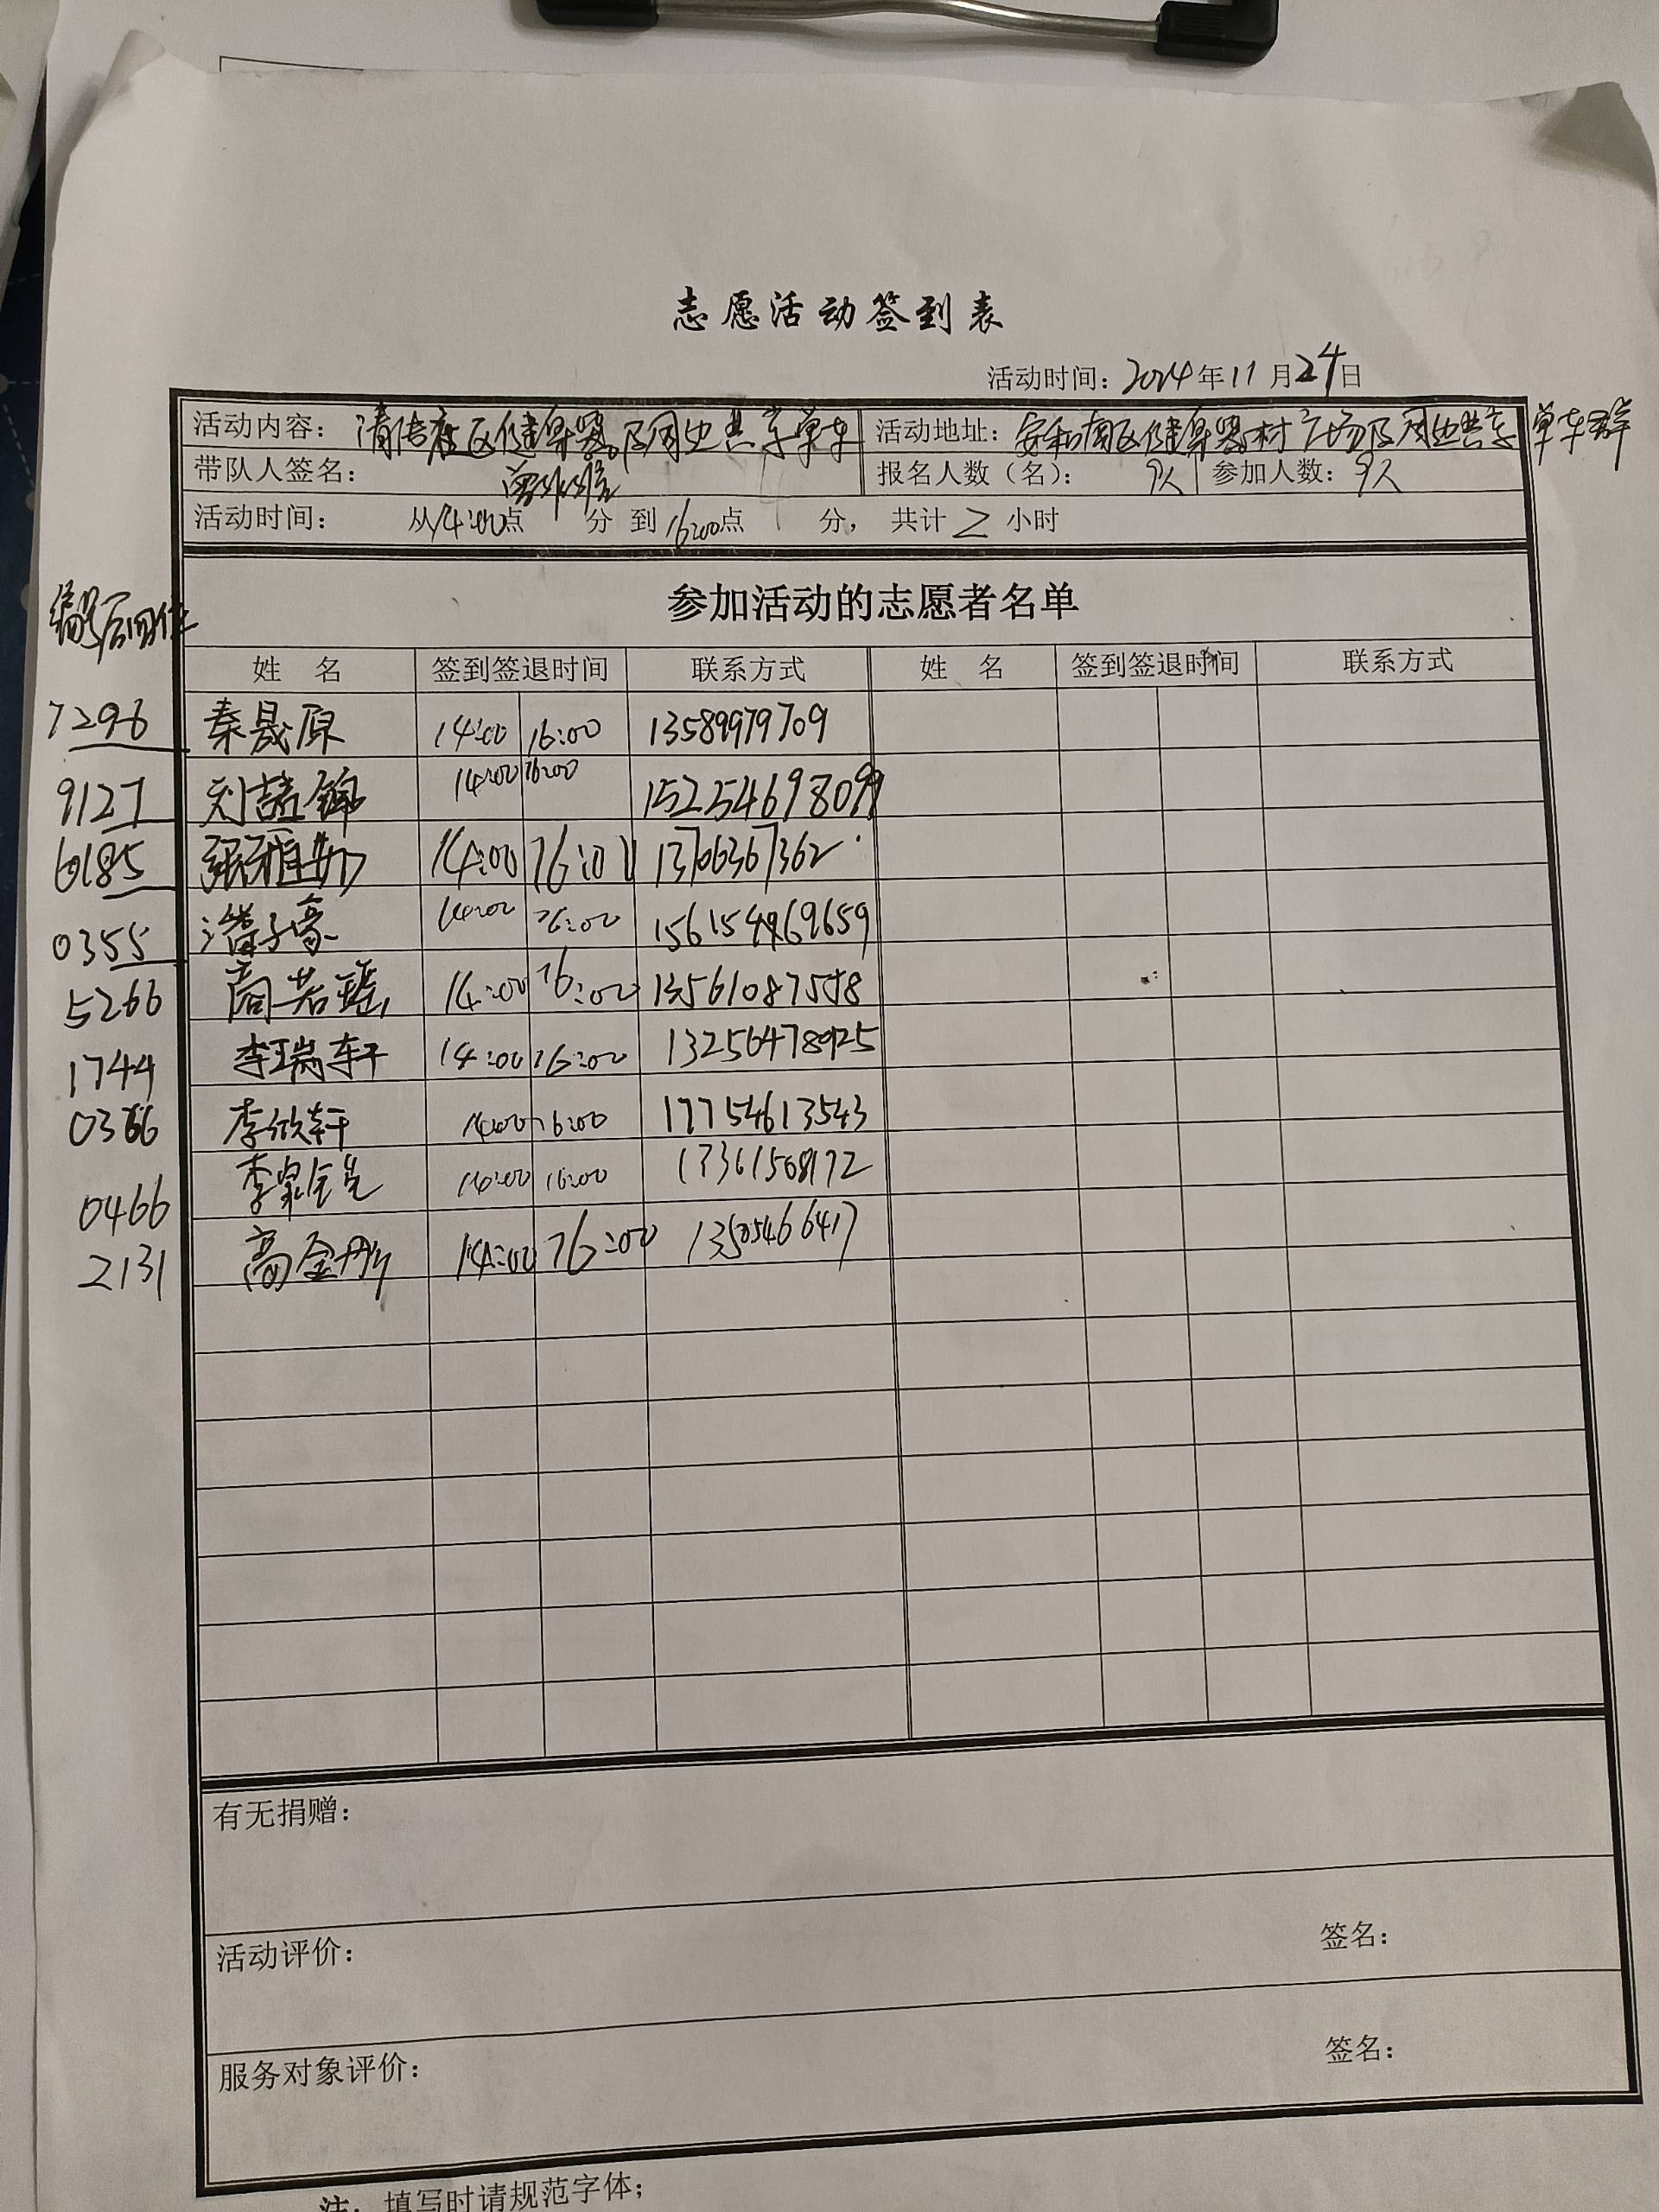 志愿活动签到表
活动时间：2024年11月24日
活动内容： 区健身器 及周边共享单车 活动地址：安和南区健身器材广场及周边共享单车
带队人签名： 报名人数（名）：9人 参加人数：9人
活动时间： 从14:00点 分 到16:00点 分， 共计2小时
编号后四位
参加活动的志愿者名单
姓 名 签到签退时间 联系方式 姓 名 签到签退时间 联系方式
7296 秦晟原 14:00 16:00 13589979709
9127 刘喆锦 14:00 16:00
6185 张雅勤 14:00 16:00 13706367362
0355 潘子豪 14:00 16:00
5266 商若瑶 14:00 16:00
1744 李瑞轩 14:00 16:00 13256478925
0366 李欣轩 14:00 16:00 17754613543
0466 李 14:00 16:00
2131 高金彤 14:00 16:00 13505466417
有无捐赠：
活动评价： 签名：
服务对象评价： 签名：
注：填写时请规范字体；